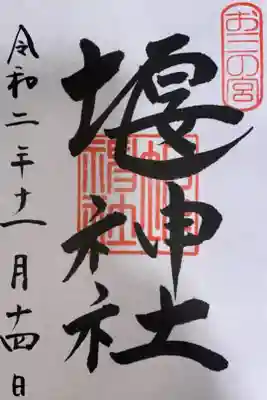 お三の宮
堰神社
令和二年十一月十四日